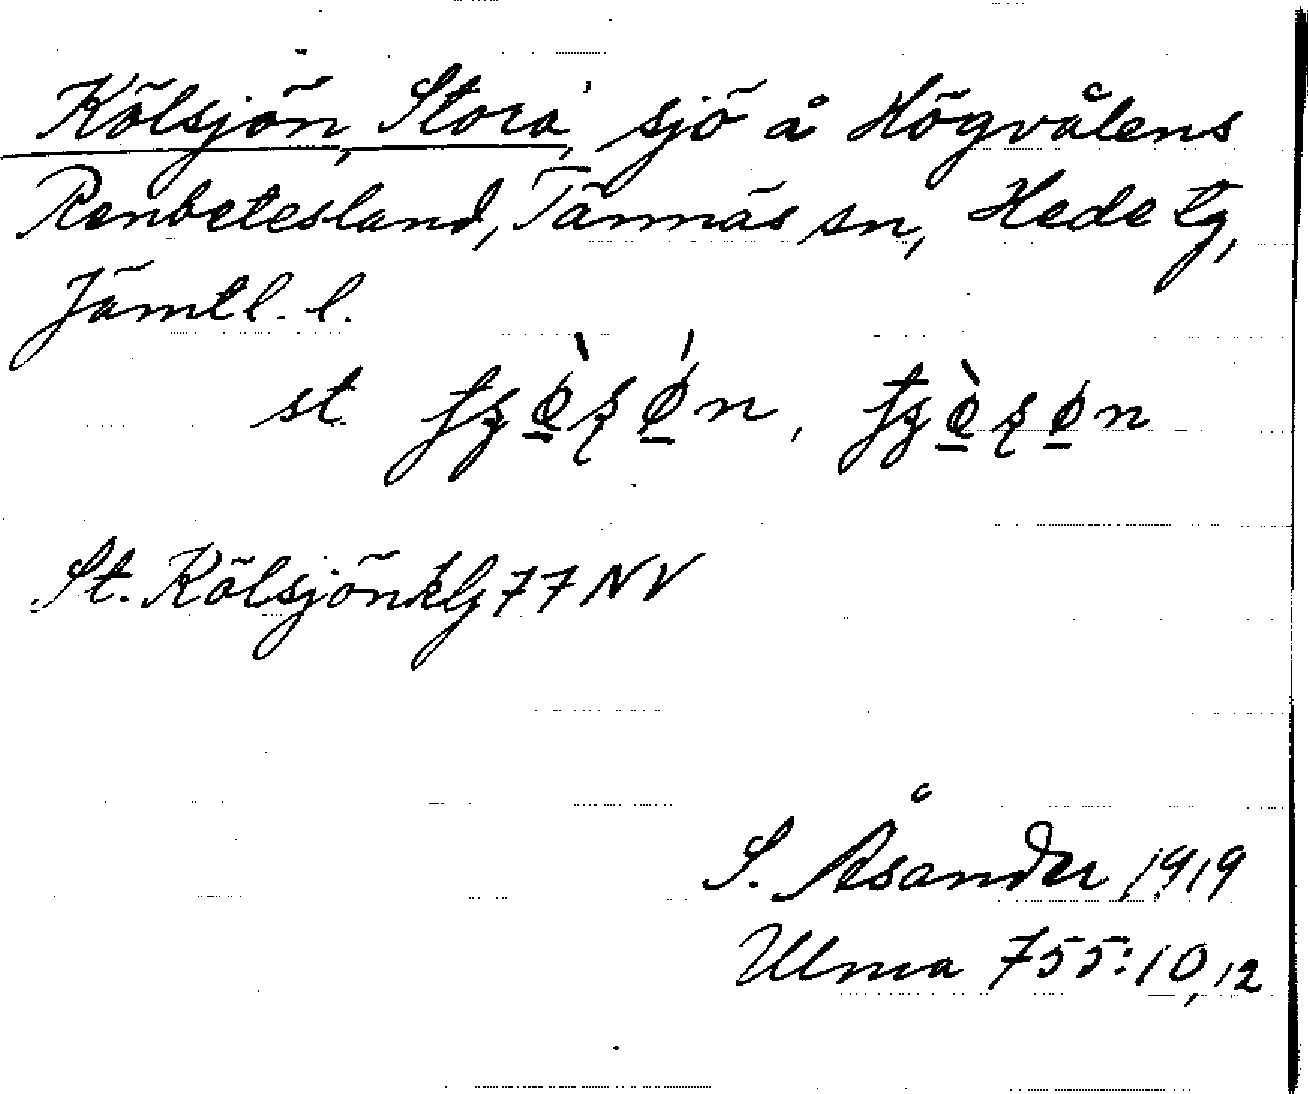 Kölsjön, Stora, sjö å Högvålens
Renbetesland, Tännäs sn, Hede tg,
Jämtl. l.
st.
St. Kölsjön klg 77 NV
S. Åsander 1919
Ulma 755:10,12